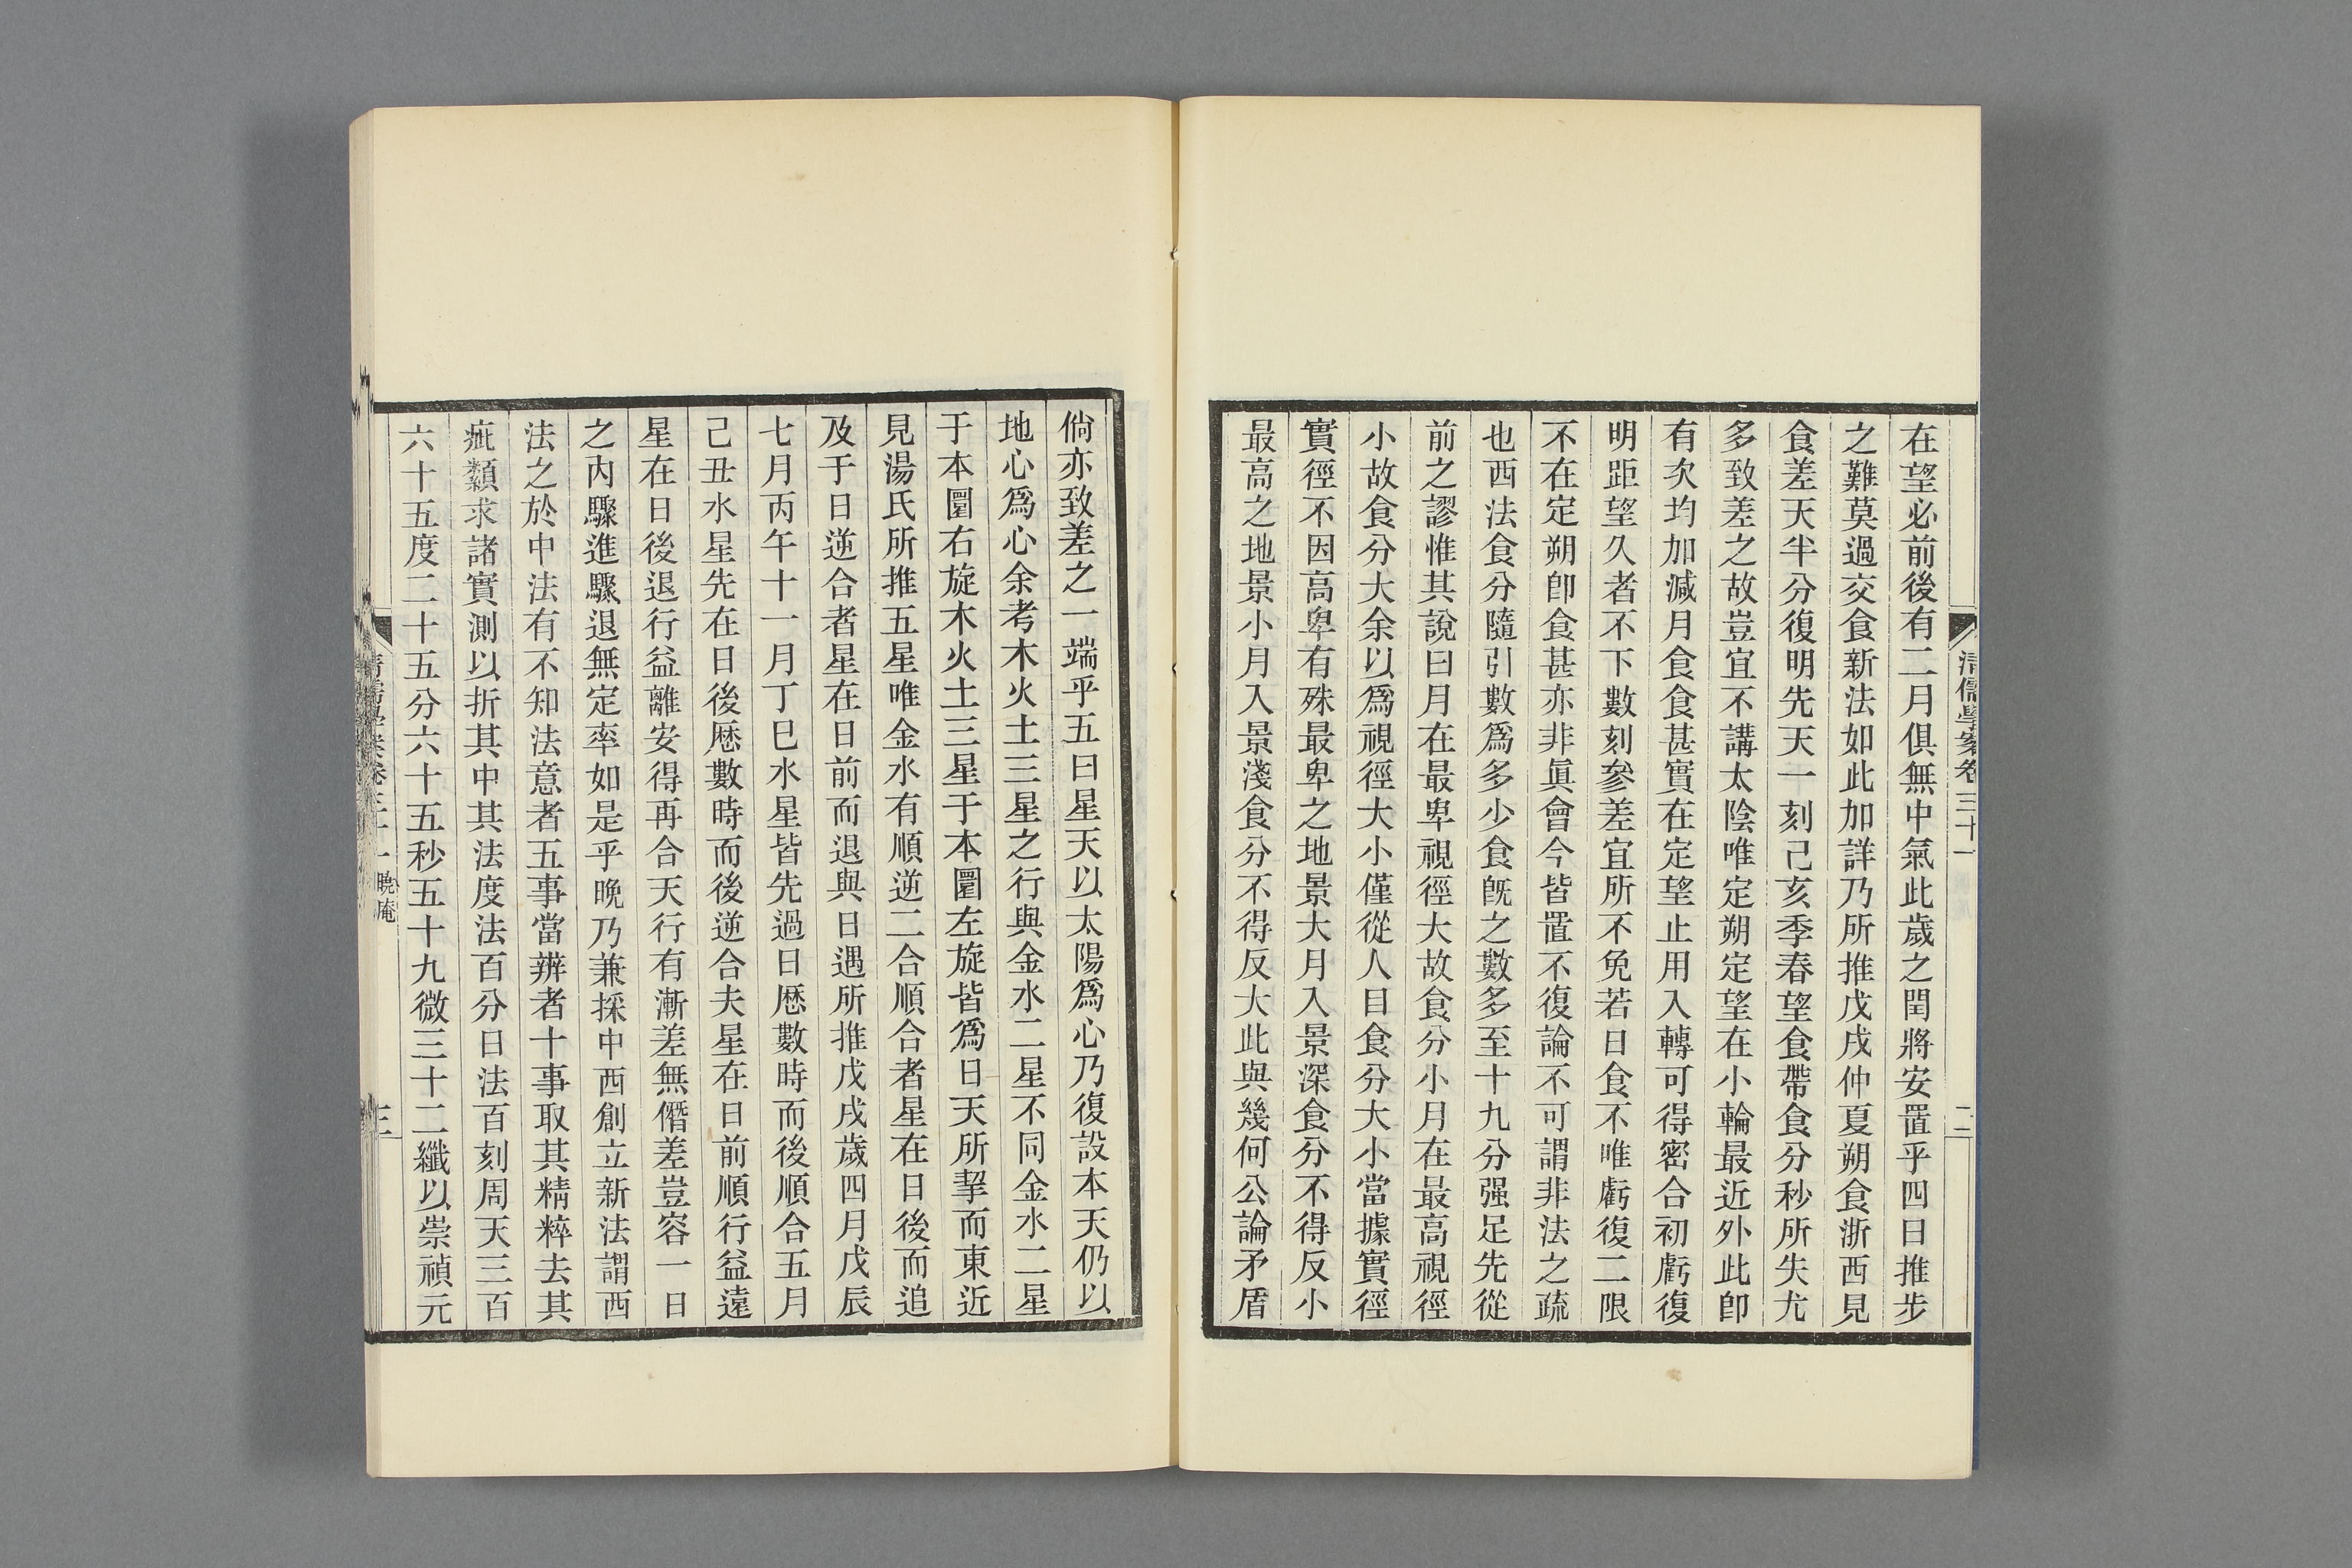 清儒學案卷三十一
二
在望必前後有二月俱無中氣此歲之閏將安置乎四曰推步
之難莫過交食新法如此加詳乃所推戊戌仲夏朔食浙西見
食差天半分復明先天一刻己亥季春望食帶食分秒所失尤
多致差之故豈宜不講太陰唯定朔定望在小輪最近外此卽
有次均加減月食食甚實在定望止用入轉可得密合初虧復
明距望久者不下數刻參差宜所不免若日食不唯虧復二限
不在定朔卽食甚亦非眞會今皆置不復論不可謂非法之疏
也西法食分隨引數爲多少食旣之數多至十九分强足先從
前之謬惟其說曰月在最卑視徑大故食分小月在最高視徑
小故食分大余以爲視徑大小僅從人目食分大小當據實徑
實徑不因高卑有殊最卑之地景大月入景深食分不得反小
最高之地景小月入景淺食分不得反大此與幾何公論矛盾
倘亦致差之一端乎五曰星天以太陽爲心乃復設本天仍以
地心爲心余考木火土三星之行與金水二星不同金水二星
于本圈右旋木火土三星于本圈左旋皆爲日天所挈而東近
見湯氏所推五星唯金水有順逆二合順合者星在日後而追
及于日逆合者星在日前而退與日遇所推戊戌歲四月戊辰
七月丙午十一月丁巳水星皆先過日厯數時而後順合五月
己丑水星先在日後厯數時而後逆合夫星在日前順行益遠
星在日後退行益離安得再合天行有漸差無僭差豈容一日
之內驟進驟退無定率如是乎晩乃兼採中西創立新法謂西
法之於中法有不知法意者五事當辨者十事取其精粹去其
疵纇求諸實測以折其中其法度法百分日法百刻周天三百
六十五度二十五分六十五秒五十九微三十二纖以崇禎元
清儒學案卷三十一 曉庵
三